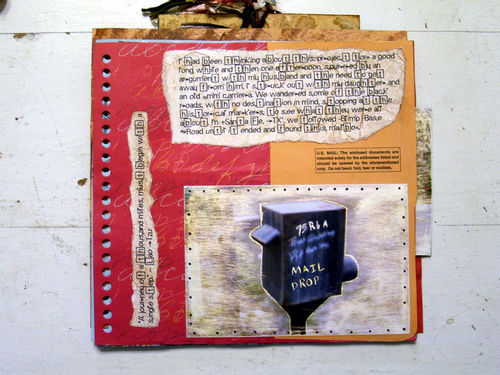 I had been thinking about this project for a good
long while and then one afternoon, spurred by an
argument with my husband and the need to get
away from him, I struck out with my daughter and
an old 35mm camera. We wandered some of the back
roads, with no destination in mind, stopping at the
historical markers, to see what they were all
about. In Santa Fe, TX, we followed Blimp Base
Road until it ended and found this mailbox.
U.S. MAIL: The enclosed documents are
intended solely for the addressee listed and
should be opened by the aforementioned
only. Do not bend, fold, tear or mutilate.
"A journey of a thousand miles must begin with a
single step." - Lao Tzu
95R6A
MAIL
DROP